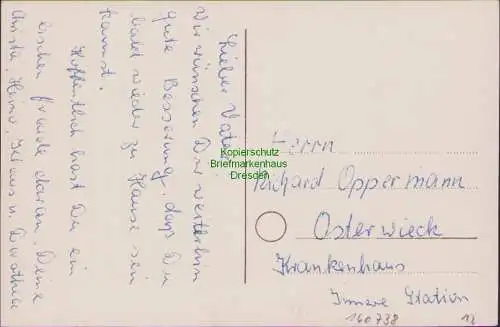 Lieber Vater!
Wir wünschen Dir weiterhin
gute Besserung, dass Du
bald wieder zu Hause sein
kannst.
Hoffentlich hast Du ein
bischen Freude daran, Deine
Christa, Heino, Klaus u. Dorothea
Herrn
Richard Oppermann
Osterwieck
Krankenhaus
Innere Station
160738
12
Kopierschutz
Briefmarkenhaus
Dresden